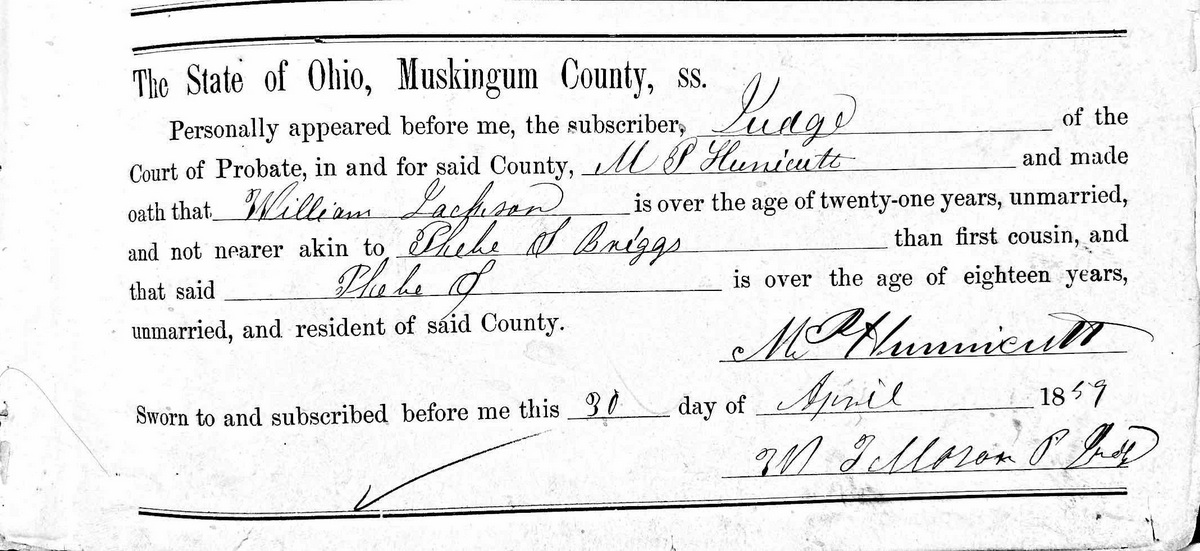 The State of Ohio, Muskingum County, ss.
Personally appeared before me, the subscriber, Judge of the
Court of Probate, in and for said County, M P Hunicutt and made
oath that William Jackson is over the age of twenty-one years, unmarried,
and not nearer akin to Phebe S Briggs than first cousin, and
that said Phebe S is over the age of eighteen years,
unmarried, and resident of said County.
M P Hunnicutt
Sworn to and subscribed before me this 30 day of April 1859
Mason P Judge